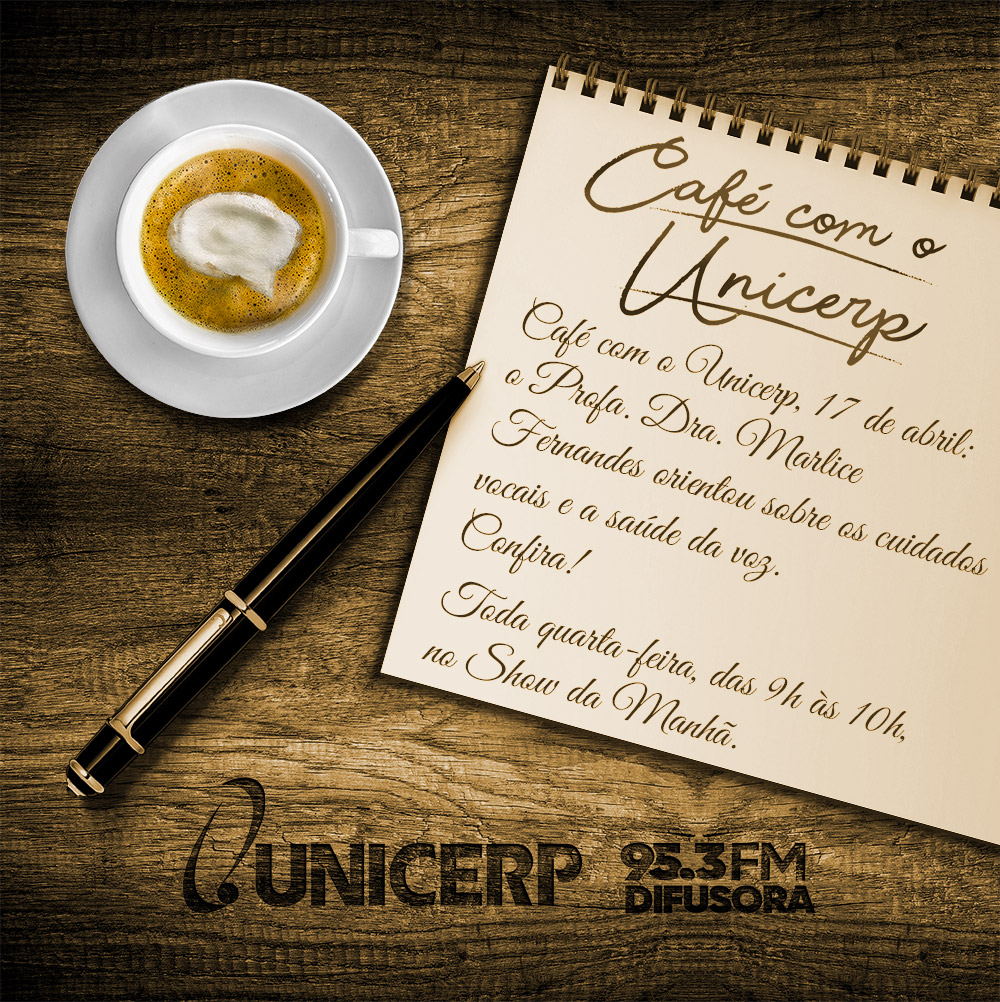 Café com o
Unicerp
Café com o Unicerp, 17 de abril:
o Profa. Dra. Marlice
Fernandes orientou sobre os cuidados
vocais e a saúde da voz.
Confira!
Toda quarta-feira, das 9h às 10h,
no Show da Manhã.
UNICERP
95.3 FM
DIFUSORA